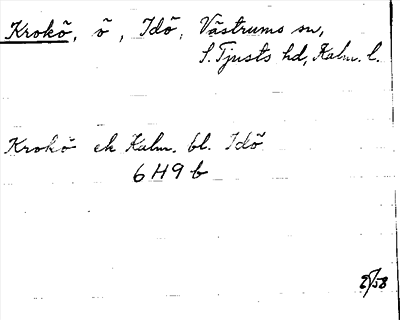 Krokö, ö, Idö, Västrums sn,
S. Tjusts hd, Kalm. l.
Krokö ek Kalm. bl. Idö
6H9b